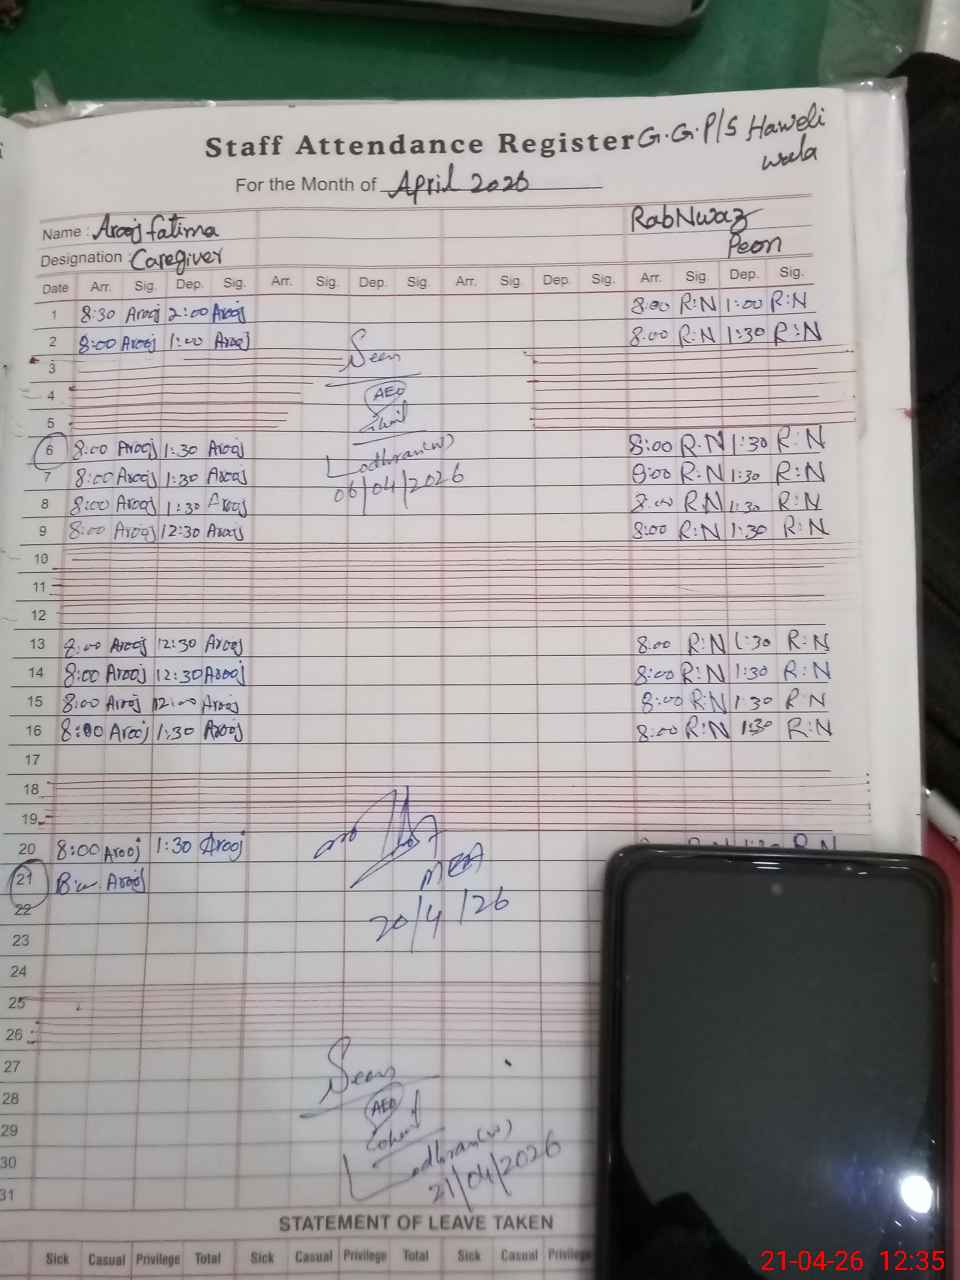 Staff Attendance Register G.G.P/S Haweli
wala
For the Month of April 2026
Name : Arooj fatima RabNwaz
Designation : Caregiver Peon
Date Arr. Sig. Dep. Sig. Arr. Sig. Dep. Sig. Arr. Sig. Dep. Sig. Arr. Sig. Dep. Sig.
1 8:30 Arooj 2:00 Arooj 8:00 R:N 1:00 R:N
2 8:00 Arooj 1:00 Arooj 8:00 R:N 1:30 R:N
Seen
3
4 AEO
5
6 8:00 Arooj 1:30 Arooj Lodhran(w) 8:00 R:N 1:30 R:N
7 8:00 Arooj 1:30 Arooj 06/04/2026 8:00 R:N 1:30 R:N
8 8:00 Arooj 1:30 Arooj 8:00 R:N 1:30 R:N
9 8:00 Arooj 12:30 Arooj 8:00 R:N 1:30 R:N
10
11
12
13 8:00 Arooj 12:30 Arooj 8:00 R:N 1:30 R:N
14 8:00 Arooj 12:30 Arooj 8:00 R:N 1:30 R:N
15 8:00 Arooj 12:00 Arooj 8:00 R:N 1:30 R:N
16 8:00 Arooj 1:30 Arooj 8:00 R:N 1:30 R:N
17
18
19
20 8:00 Arooj 1:30 Arooj R.N
21 Arooj MEA
22 20/4/26
23
24
25
26
27 Seen
28 AEO
29
30 Lodhran(w)
31 21/04/2026
STATEMENT OF LEAVE TAKEN
Sick Casual Privilege Total Sick Casual Privilege Total Sick Casual Privilege
21-04-26 12:35